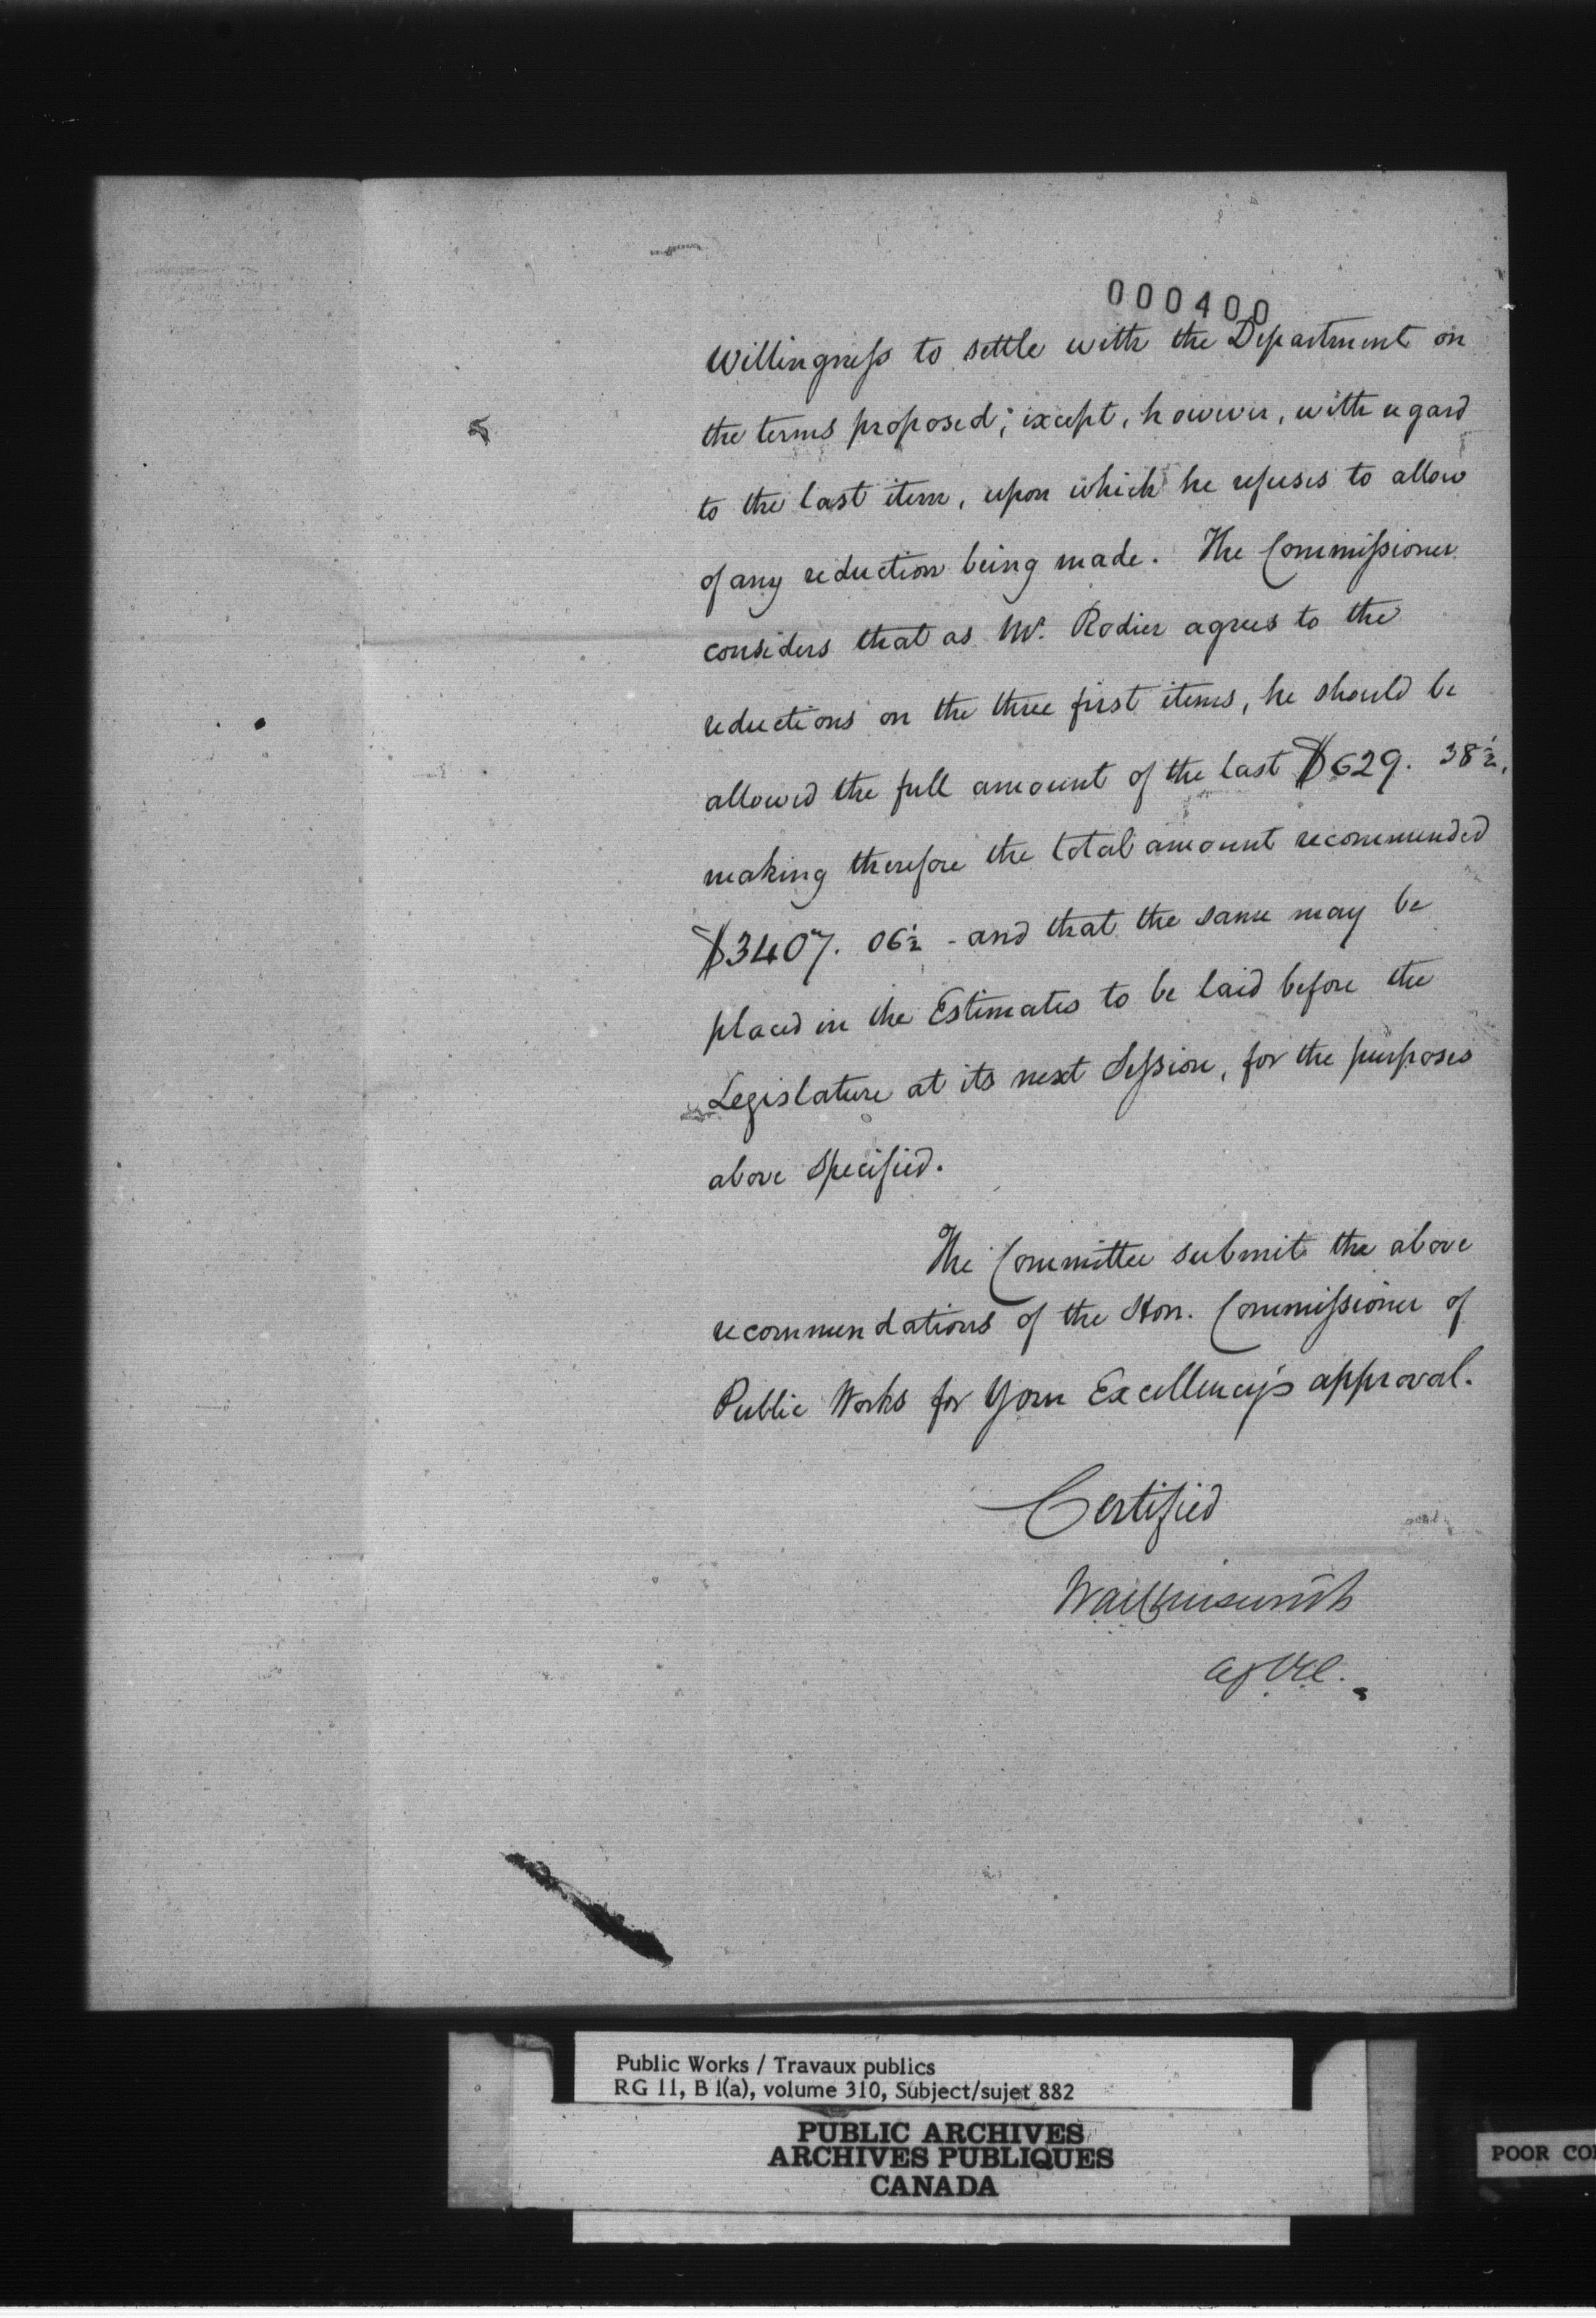 000400
Willingness to settle with the Department on
the terms proposed; except, however, with regard
to the last item, upon which he refuses to allow
of any reduction being made. The Commissioner
considers that as Mr. Rodier agrees to the
reductions on the three first items, he should be
allowed the full amount of the last $629. 38½,
making therefore the total amount recommended
$3407. 06½ - and that the same may be
placed in the Estimates to be laid before the
Legislature at its next Session, for the purposes
above specified.
The Committee submit the above
recommendations of the Hon. Commissioner of
Public Works for Your Excellency's approval.
Certified
Public Works / Travaux publics
RG 11, B 1(a), volume 310, Subject/sujet 882
PUBLIC ARCHIVES
ARCHIVES PUBLIQUES
CANADA
POOR CO